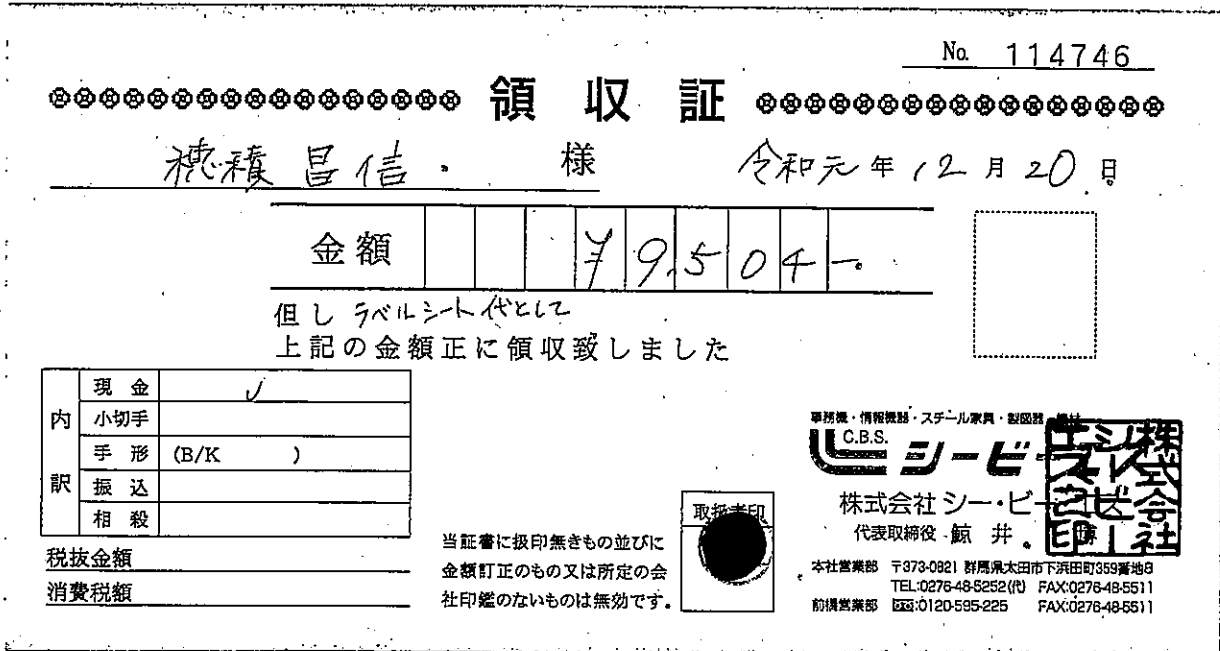 No. 114746
領収証
穂積 昌信 様
令和元年12月20日
金額 ¥9,504-
但し ラベルシート代として
上記の金額正に領収致しました
内訳
現金 ✓
小切手
手形 (B/K )
振込
相殺
税抜金額
消費税額
当証書に扱印無きもの並びに
金額訂正のもの又は所定の会
社印鑑のないものは無効です。
取扱者印
事務機・情報機器・スチール家具・製図器・機材
C.B.S.
シービー
株式会社 シー・ビー・エス
代表取締役 鯨井
株式会社シービーエス之印
本社営業部 〒373-0821 群馬県太田市下浜田町359番地8
TEL:0276-48-5252(代) FAX:0276-48-5511
前橋営業部 :0120-595-225 FAX:0276-48-5511